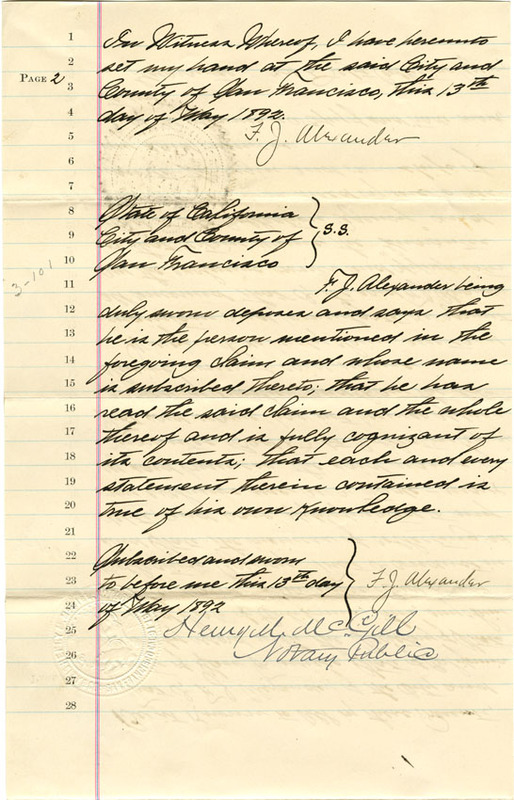 1 In Witness Whereof, I have hereunto
2 set my hand at the said City and
PAGE 2
3 County of San Francisco, this 13th
4 day of May 1892.
5 F. J. Alexander
6
7
8 State of California
9 City and County of } S.S.
10 San Francisco
3-101
11 F. J. Alexander being
12 duly sworn deposes and says that
13 he is the person mentioned in the
14 foregoing claim and whose name
15 is subscribed thereto; that he has
16 read the said claim and the whole
17 thereof and is fully cognizant of
18 its contents; that each and every
19 statement therein contained is
20 true of his own knowledge.
21
22 Subscribed and sworn
23 to before me this 13th day } F. J. Alexander
24 of May 1892
25 Henry M. McGill
26 Notary Public
27
28